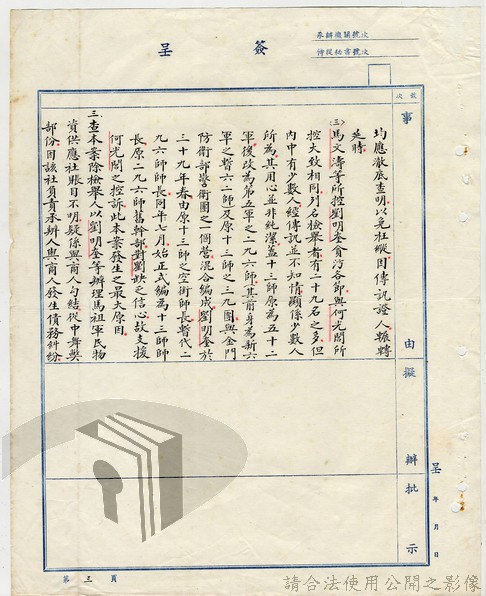 簽呈
承辦機關號次
侍從秘書號次
頁次
事
由
擬
辦
批
示
均應澈底查明以免枉縱因傳訊證人輾轉
延時
(三)馬文濤等所控劉明奎貪污各節與何光閣所
控大致相同列名檢舉者有二十九名之多但
內中有少數人經傳訊並不知情顯係少數人
所為其用心並非純潔蓋十三師原為五十二
軍後改為第五軍之二九六師其前身為新六
軍之暫六二師及原十三師之三九團與金門
防衛部警衛團之一個營混合編成劉明奎於
三十九年春由原十三師之空銜師長暫代二
九六師師長同年七月始正式編為十三師師
長原二九六師舊幹部對劉缺乏信心故支援
何光閣之控訴此本案發生之最大原因
三查本案除檢舉人以劉明奎等辦理馬祖軍民物
資供應社賬目不明疑係與商人勾結從中舞弊
部份因該社負責承辦人與商人發生債務糾紛
呈
年
月
日
第三頁
請合法使用公開之影像